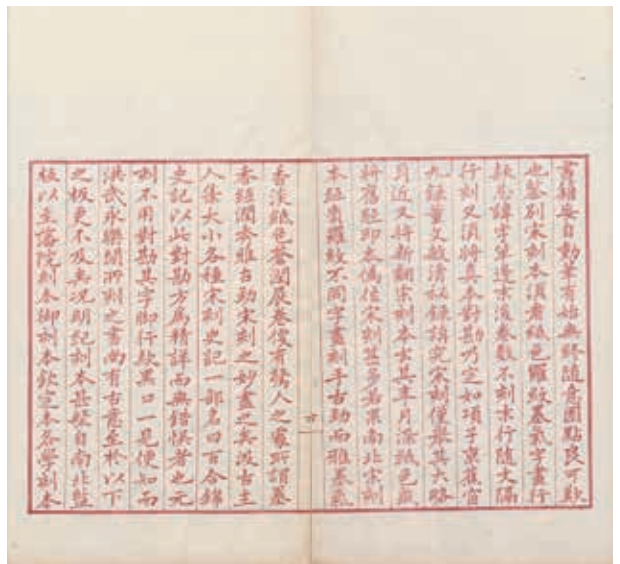 書籍妄自動筆有始無終隨意圈點良可歎
也鑒別宋刻本須看紙色羅紋墨氣字畫行
款忌諱字單邊末後卷數不刻末行隨文隔
行刻又須將真本對勘乃定如項子京蕉窗
九錄董文敏清秘錄講究宋刻僅舉其大略
耳近又將新翻宋刻本去其年月染紙色或
將舊紙印本偽作宋刻甚多若果南北宋刻
本紙質羅紋不同字畫刻手古勁而雅墨氣
香淡紙色蒼潤展卷便有驚人之處所謂墨
香紙潤秀雅古勁宋刻之妙盡之矣汲古主
人集大小各種宋刻史記一部名曰百合錦
史記以此對勘方為精詳而無錯悞者也元
刻不用對勘其字腳行款黑口一見便知而
洪武永樂間所刻之書尚有古意至於以下
之板更不及矣況明紀刻本甚繁自南北監
板以至藩院刻本御刻本欽定本各學刻本